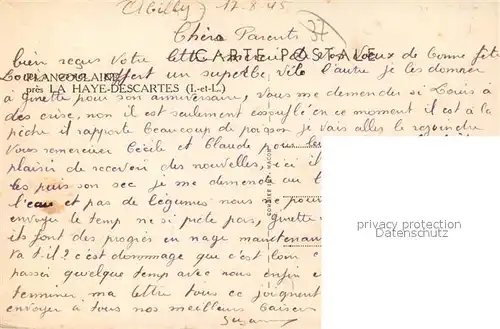 Abilly 17.8.45
37
Chers Parents
CARTE POSTALE
bien reçus Votre lettre merci de vos voeux de bonne fête
PLANCOULAINE
Louis offert un superbe vélo l'autre je les donner
près LA HAYE-DESCARTES (I.-et-L.)
à ginette pour son anniversaire, Vous me demander si Louis à
des crise, non il est seulement essouflé en ce moment il est à la
pêche il rapporte beaucoup de poisson je vais aller le rejoindre
Vous remercier Cécile et Claude pour les
plaisir de recevoir des nouvelles, ici il
les puis son sec je me demande au
l'eau et pas de légumes nous ne pou
envoyer le temp ne si prete pas, ginette
ils font des progrès en nage maintenan
Va t-il ? c'est dommage que c'est loin
passer quelque temp avec nous enfin
terminer ma lettre tous ce joignent
envoyer à tous nos meilleurs baiser
Suzan
privacy protection
www.delcampe.net